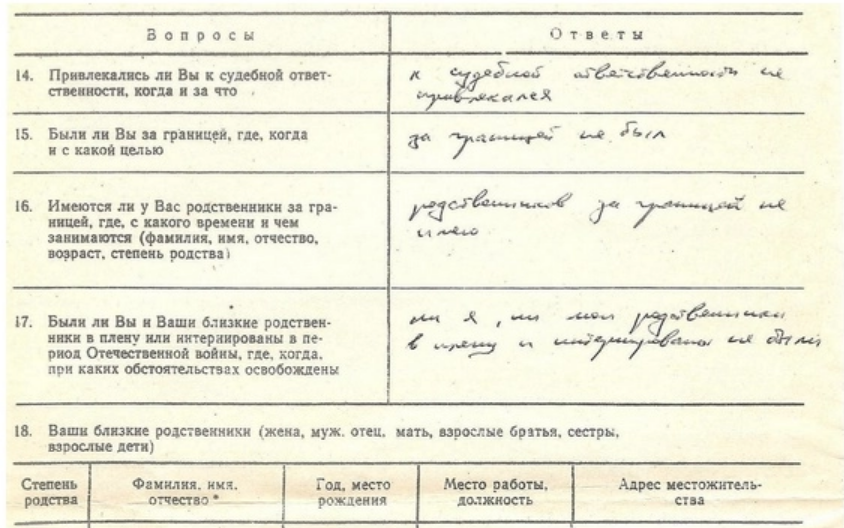 Вопросы
Ответы
14. Привлекались ли Вы к судебной ответ-
ственности, когда и за что
к судебной ответственности не
привлекался
15. Были ли Вы за границей, где, когда
и с какой целью
за границей не был
16. Имеются ли у Вас родственники за гра-
ницей, где, с какого времени и чем
занимаются (фамилия, имя, отчество,
возраст, степень родства)
родственников за границей не
имею
17. Были ли Вы и Ваши близкие родствен-
ники в плену или интернированы в пе-
риод Отечественной войны, где, когда,
при каких обстоятельствах освобождены
ни я, ни мои родственники
в плену и интернированы не были
18. Ваши близкие родственники (жена, муж. отец, мать, взрослые братья, сестры,
взрослые дети)
Степень
родства
Фамилия, имя,
отчество *
Год, место
рождения
Место работы,
должность
Адрес местожитель-
ства